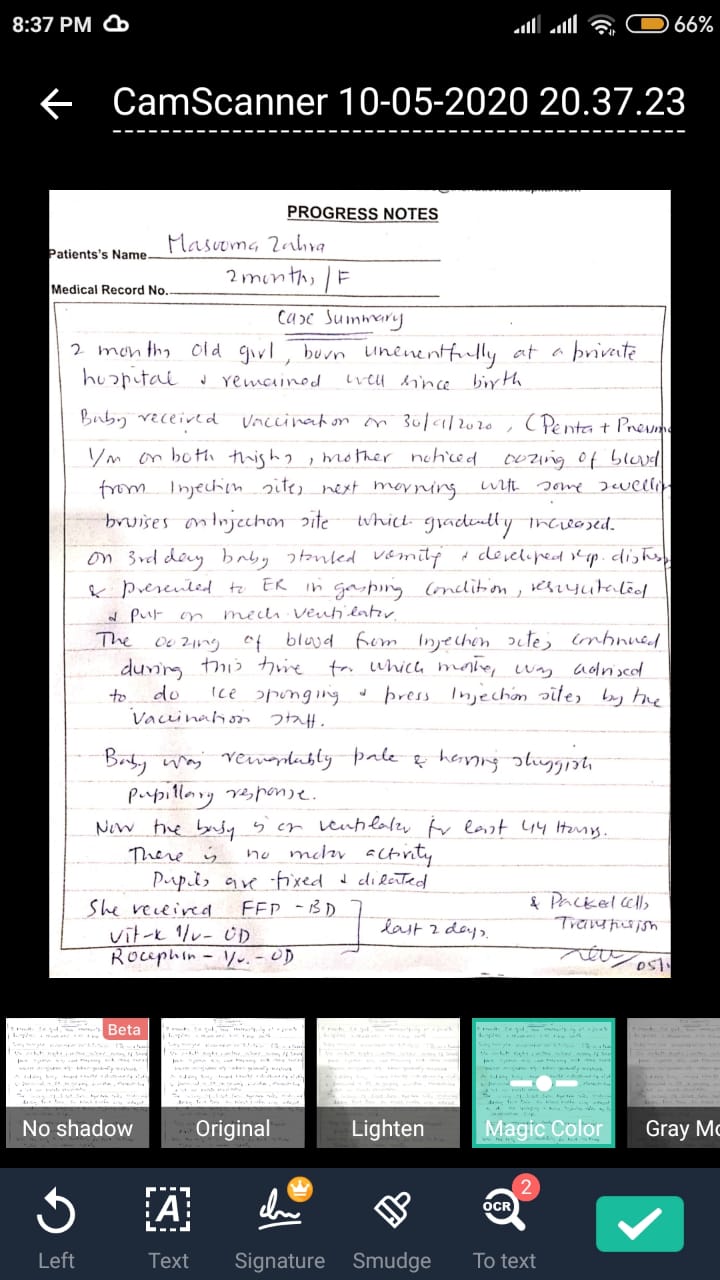 8:37 PM
66%
CamScanner 10-05-2020 20.37.23
PROGRESS NOTES
Patients's Name Masooma Zahra
Medical Record No. 2 months / F
Case Summary
2 months old girl, born unenentfully at a private
hospital & remained well since birth
Baby received Vaccination on 30/ /2020, (Penta + Pneumo
I/m on both thighs, mother noticed oozing of blood
from Injection sites next morning with some swelling
bruises on Injection site which gradually Increased.
on 3rd day baby started vomity & developed resp. distress
& presented to ER in gasping condition, resuscitated
& put on mech. ventilator.
The oozing of blood from Injection sites continued
during this time for which mother was advised
to do Ice sponging & press Injection sites by the
Vaccination staff.
Baby was remarkably pale & having sluggish
pupillary response.
Now the baby is on ventilator for last 44 Hours.
There is no motor activity
Pupils are fixed & dilated
She received FFP - BD & Packed cells
Vit-K I/V - OD last 2 days. Transfusion
Rocephin - I/v. - OD 05/
Beta
No shadow
Original
Lighten
Magic Color
Gray Mo
Left
Text
Signature
Smudge
OCR
2
To text